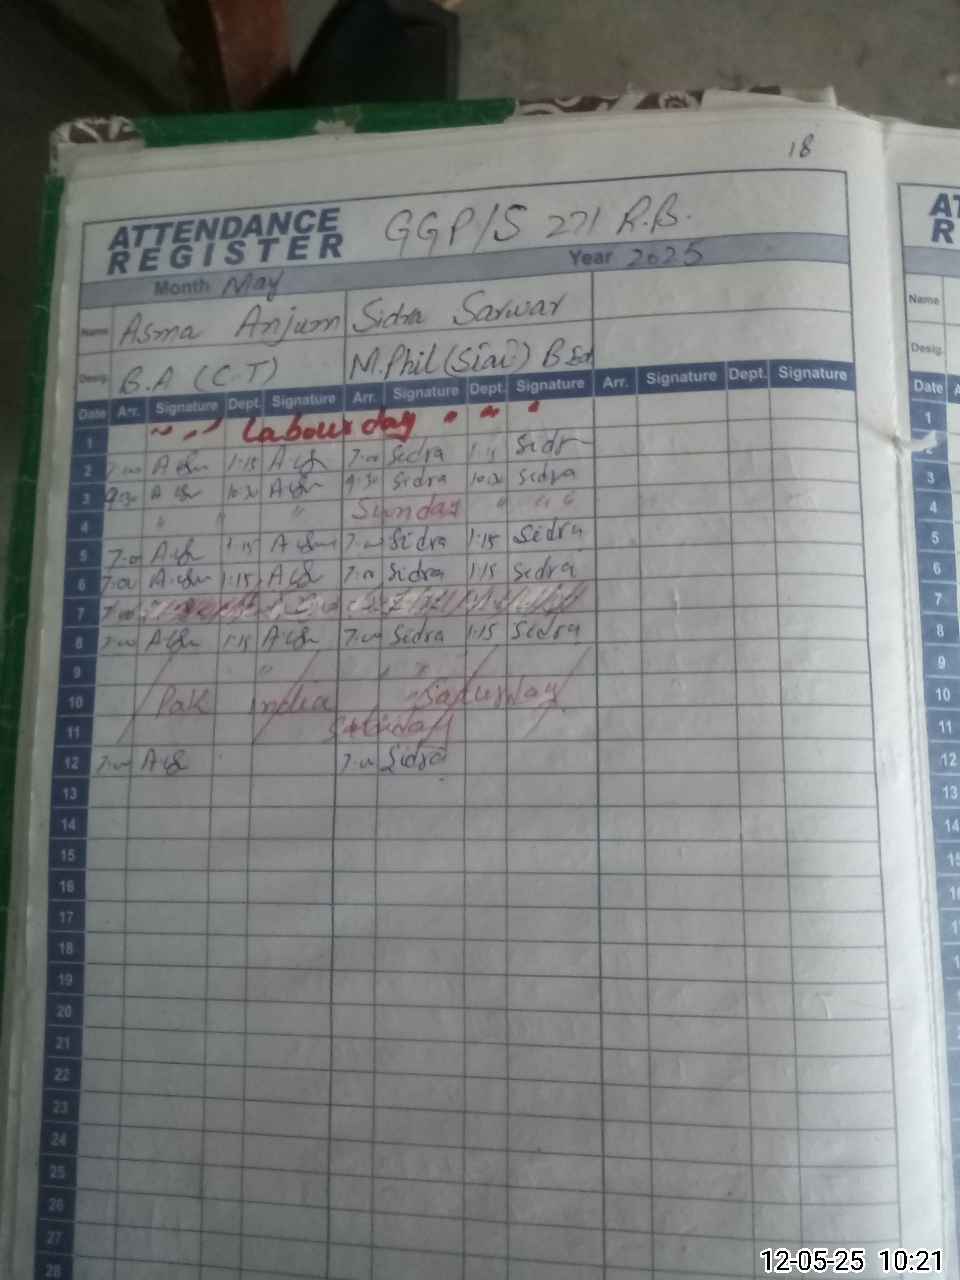 18
ATTENDANCE REGISTER GGP/S 271 R.B.
Month May Year 2025
Name Asma Anjum Sidra Sarwar
Desig. B.A (C.T) M.Phil (Siai) B.Ed
Date Arr. Signature Dept. Signature Arr. Signature Dept. Signature Arr. Signature Dept. Signature
1 " " " Labour day " " "
2 7:00 1:15 7:00 Sidra 1:15 Sidr
3 9:30 10:30 9:30 Sidra 10:30 Sidra
4 " " " Sunday " " "
5 7:00 1:15 7:00 Sidra 1:15 Sidra
6 7:00 1:15 7:00 Sidra 1:15 Sidra
7 7:00
8 7:00 1:15 7:00 Sidra 1:15 Sidra
9 " "
10 Pak India Saturday
11 Sunday
12 7:00 7:00 Sidra
13
14
15
16
17
18
19
20
21
22
23
24
25
26
27
28
AT
R
Name
Desig.
Date A
1
2
3
4
5
6
7
8
9
10
11
12
13
14
15
12-05-25 10:21